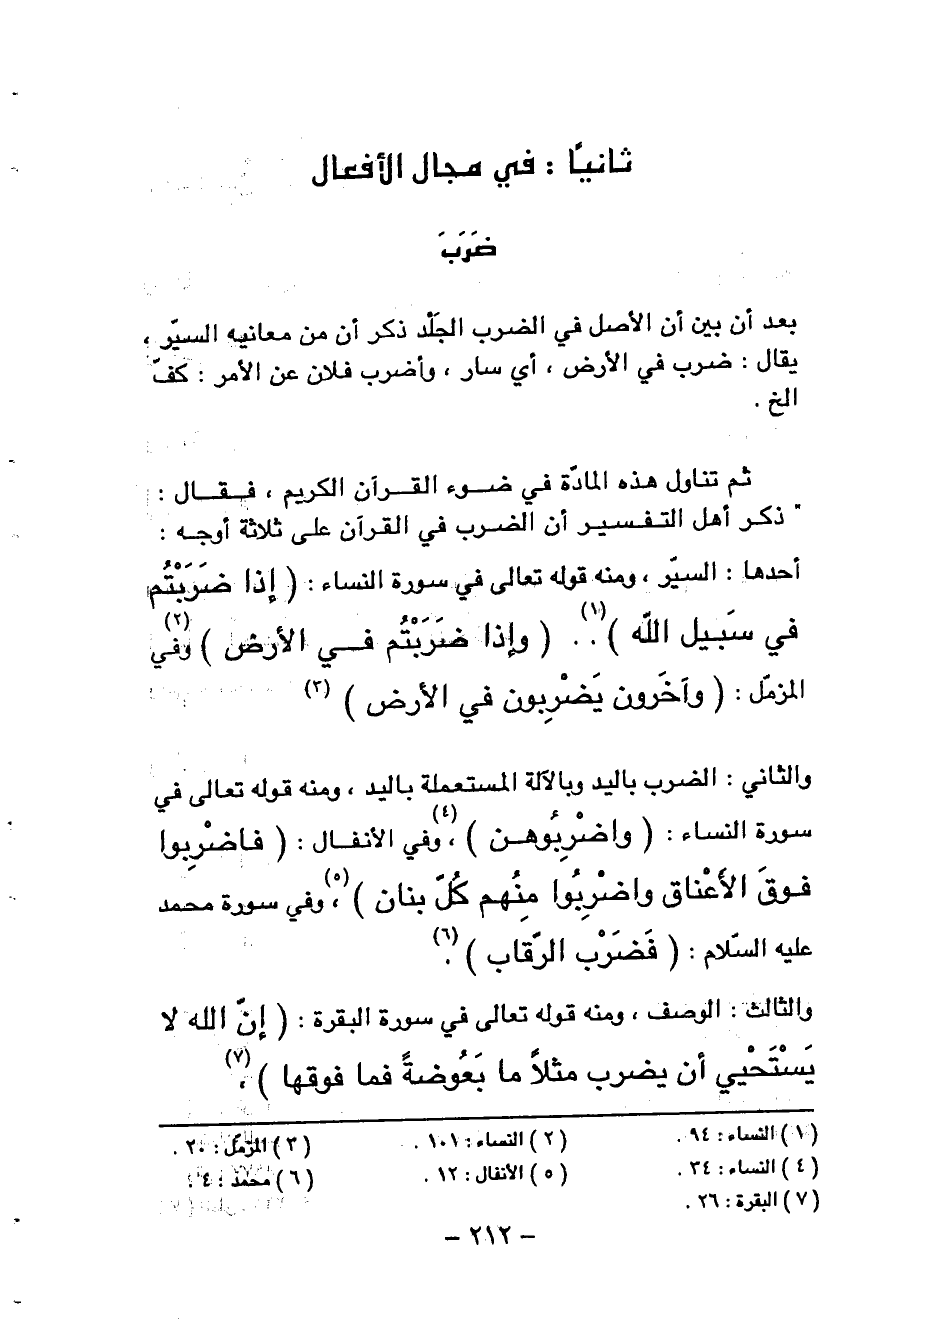 ثانيًا : في مجال الأفعال
ضَرَبَ
بعد أن بين أن الأصل في الضرب الجَلْد ذكر أن من معانيه السيّر ،
يقال : ضرب في الأرض ، أي سار ، وأضرب فلان عن الأمر : كفّ
الخ .
ثم تناول هذه المادّة في ضوء القرآن الكريم ، فقال :
" ذكر أهل التفسير أن الضرب في القرآن على ثلاثة أوجه :
أحدها : السيّر ، ومنه قوله تعالى في سورة النساء : ( إذا ضَرَبْتُم
في سَبيل اللّه )(١). . ( وإذا ضَرَبْتُم في الأرض )(٢) وفي
المزمّل : ( وآخَرون يَضْرِبون في الأرض ) (٣)
والثاني : الضرب باليد وبالآلة المستعملة باليد ، ومنه قوله تعالى في
سورة النساء : ( واضْرِبُوهن )(٤)، وفي الأنفال : ( فاضْرِبوا
فوقَ الأَعْناق واضْرِبُوا مِنُهم كُلّ بنان )(٥)، وفي سورة محمد
عليه السّلام : ( فَضَرْب الرّقاب )(٦).
والثالث : الوصف ، ومنه قوله تعالى في سورة البقرة : ( إنّ الله لا
يَسْتَحْيي أن يضرب مثلاً ما بَعُوضةً فما فوقها )(٧)،
(١) النساء : ٩٤ . (٢) النساء : ١٠١ . (٣) المزّمّل : ٢٠ .
(٤) النساء : ٣٤ . (٥) الأنفال : ١٢ . (٦) محمّد : ٤ .
(٧) البقرة : ٢٦ .
– ٢١٢ –